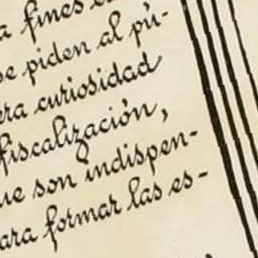 a fines e
se piden al pú-
era curiosidad
fiscalización,
ue son indispen-
ara formar las es-